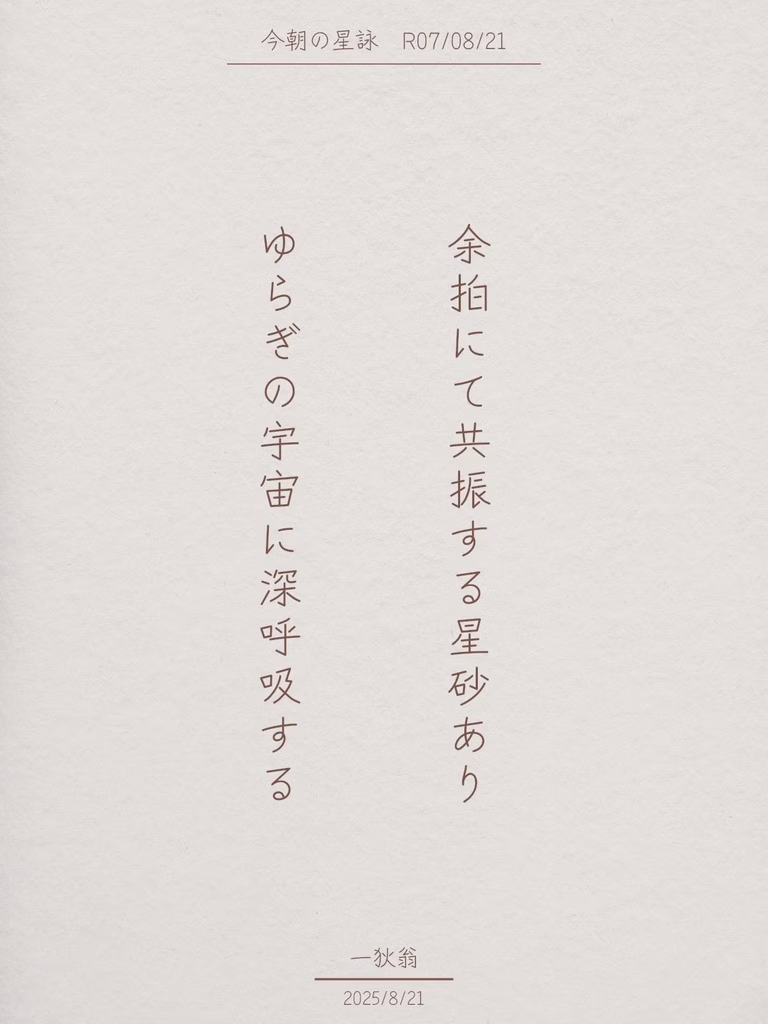 今朝の星詠　R07/08/21
余拍にて共振する星砂あり
ゆらぎの宇宙に深呼吸する
一狄翁
2025/8/21